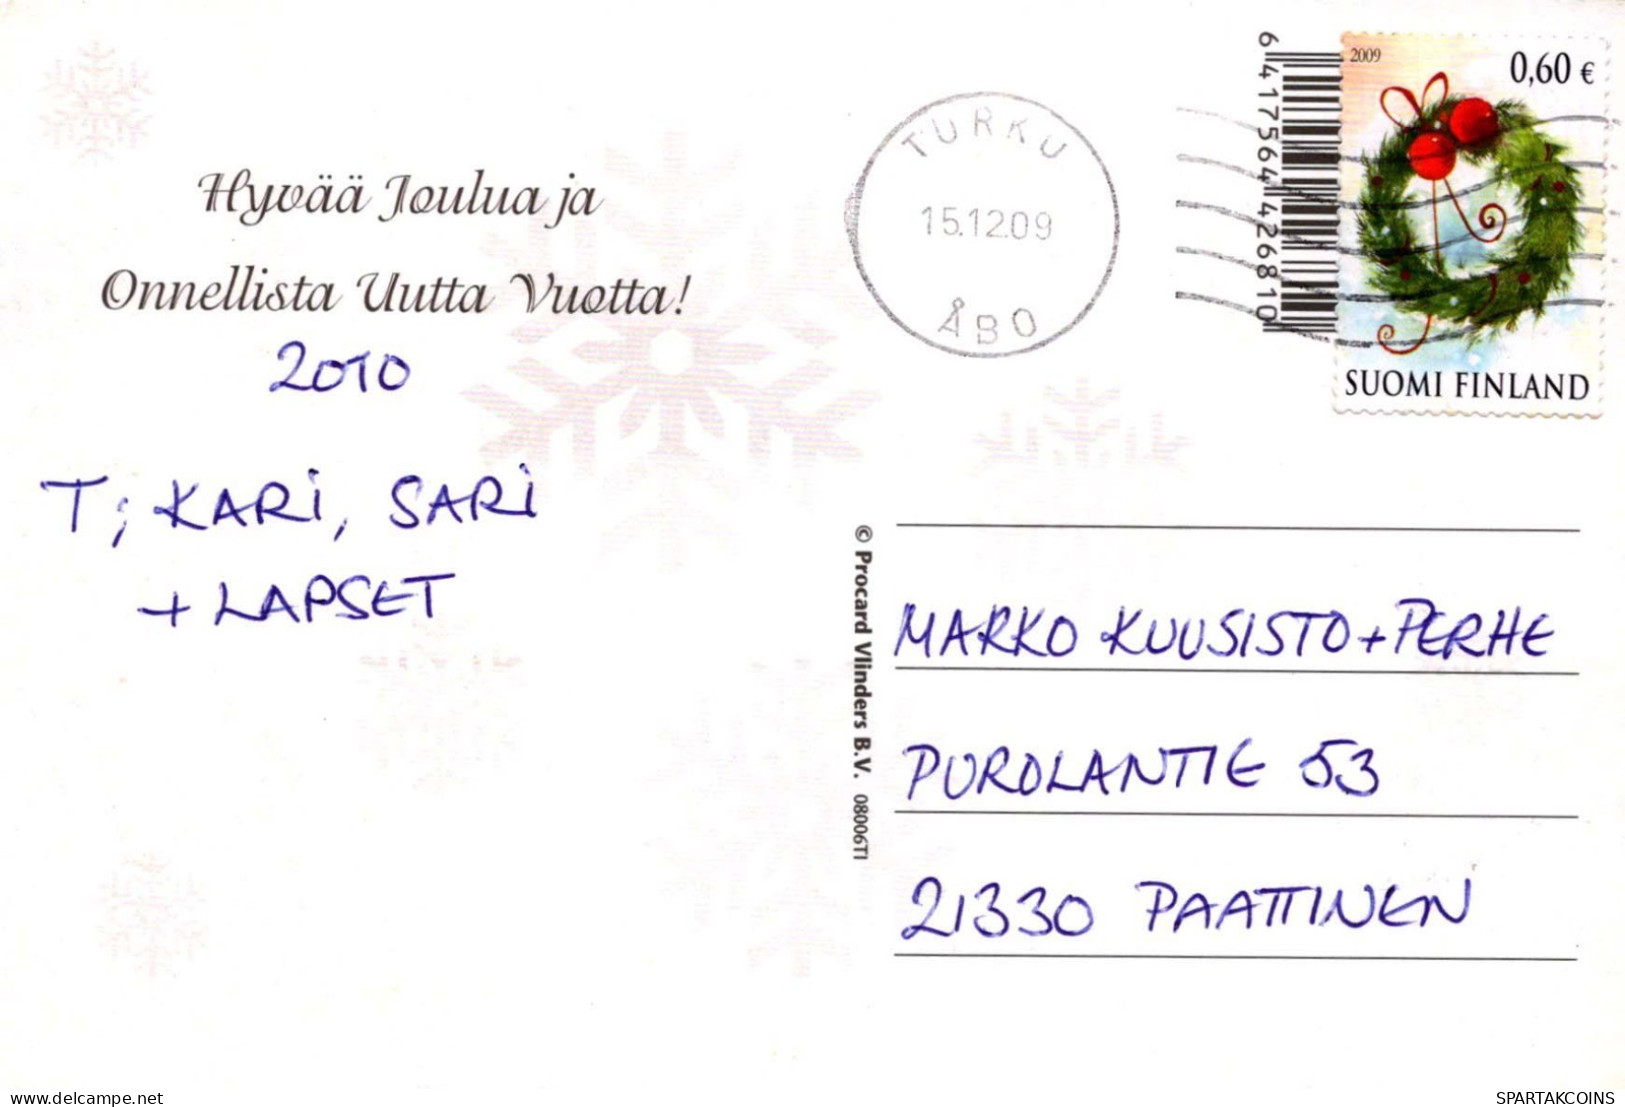 Hyvää Joulua ja
Onnellista Uutta Vuotta!
2010
T; KARI, SARI
+ LAPSET
TURKU
15.12.09
ÅBO
6 417564 426810
2009
0,60 €
SUOMI FINLAND
© Procard Vlinders B.V. 08006TI
MARKO KUUSISTO + PERHE
PUROLANTIE 53
21330 PAATTINEN
delcampe.net
SPARTAKCOINS